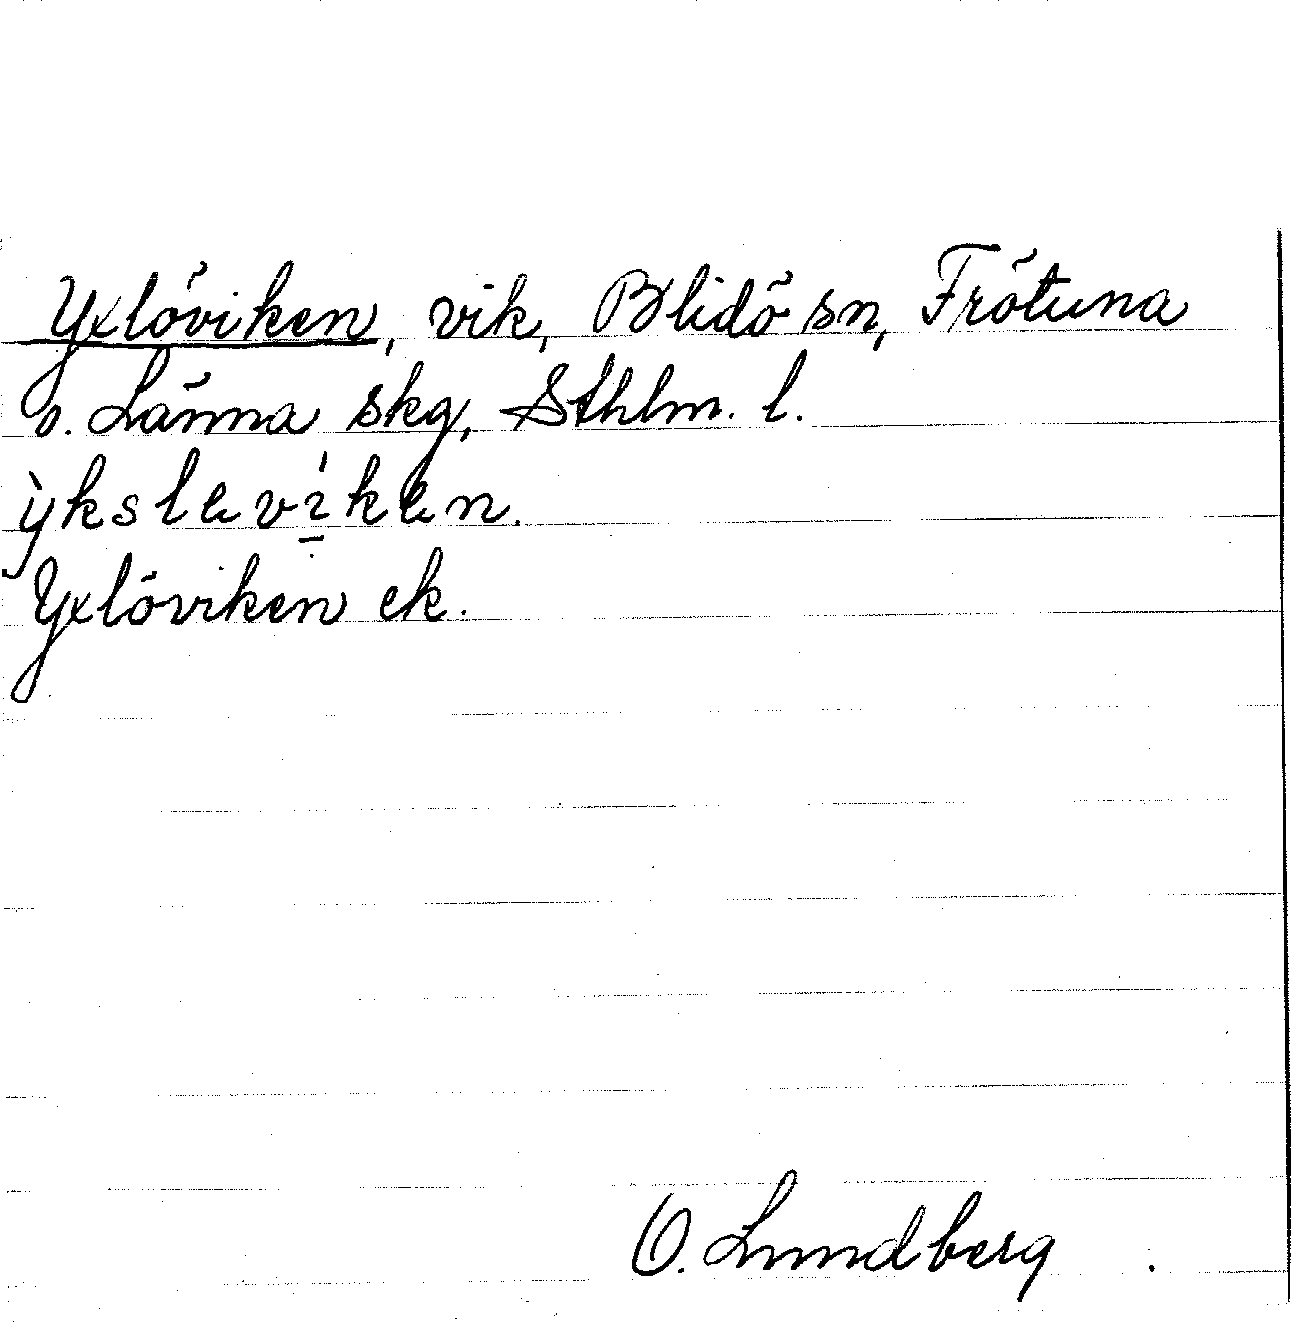 Yxlöviken, vik, Blidö sn, Frötuna
o. Länna skg, Sthlm. l.
ỳksleví̱ken.
Yxlöviken ek.
O. Lundberg